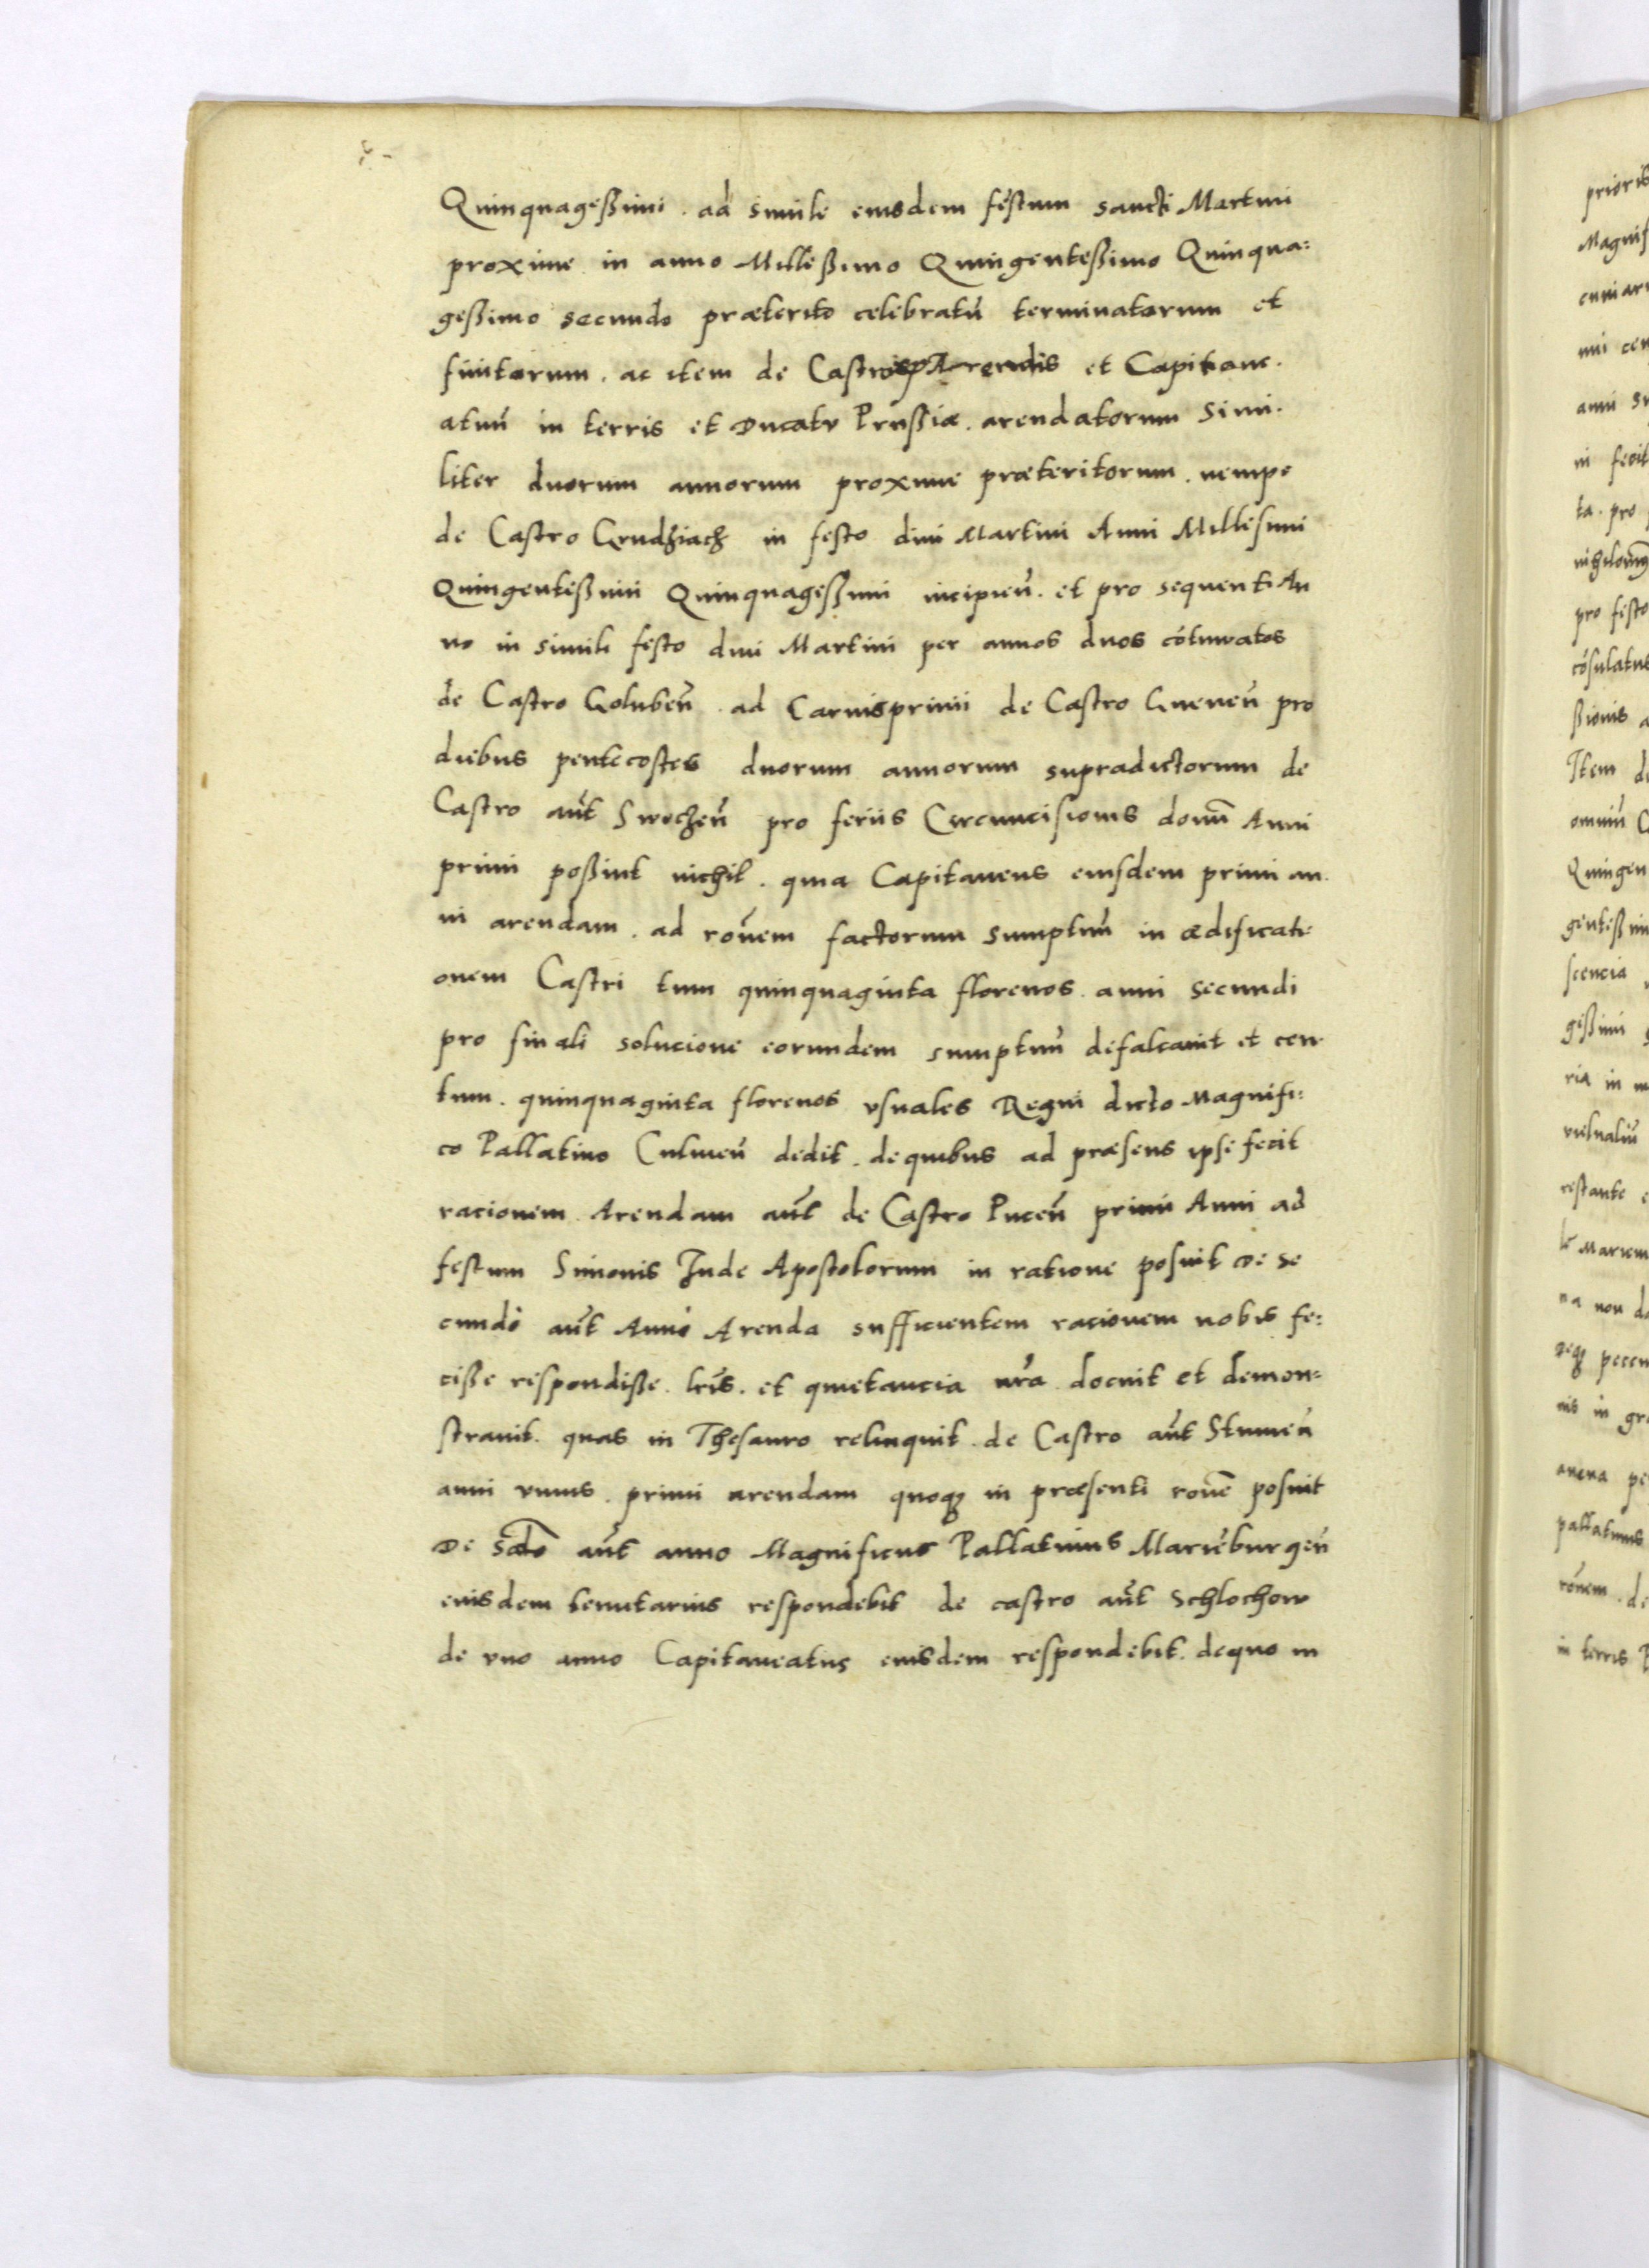 Quinquagessimi . ad simile eiusdem festum sancti Martini
proxime in anno Millessimo Quingentessimo Quinqua=
gessimo secundo præterito celebratū terminatorum et
finitorum . ac item de Castris Arendis et Capitane.
atuū in terris et Ducatu Prussiæ . arendatorum Simi.
liter duorum annorum proxime præteritorum . nempe
de Castro Grudziach in festo divi Martini Anni Millesimi
Quingentessimi Quinquagessimi incipieñ . et pro sequenti An
no in simili festo divi Martini per annos duos cōtinuatos
de Castro Golubeñ . ad Carnisprivii de Castro Gneveñ pro
diebus pentecostes duorum annorum supradictorum de
Castro aūt Swecheñ pro feriis Circumcisionis domī Anni
primi possint nichil . quia Capitaneus eiusdem primi an.
ni arendam . ad roñem factorum sumptuū in ædificati
onem Castri tum quinquaginta florenos . anni secundi
pro finali solucione eorundem sumptuū defalcavit et cen
tum . quinquaginta florenos usuales Regni dicto Magnifi=
co Pallatino Culmeñ dedit . de quibus ad præsens ipse fecit
racionem . Arendam aūt de Castro Puceñ primi Anni ad
festum Simonis Jude Apostolorum in ratione posuit De se
cundo aūt Anno Arenda sufficientem racionem nobis fe=
cisse respondisse . lr̃is . et quietancia nr̃a docuit et demon=
stravit . quas in Thesauro relinquit . de Castro aūt Stumeñ
anni unius . primi arendam quoqȝ in præsenti roñe posuit
De scdo aūt anno Magnificus Pallatinus Marieburgeñ
eiusdem tenutarius respondebit de castro aūt Schlochow
de uno anno Capitaneatus eiusdem respondebit . de quo in